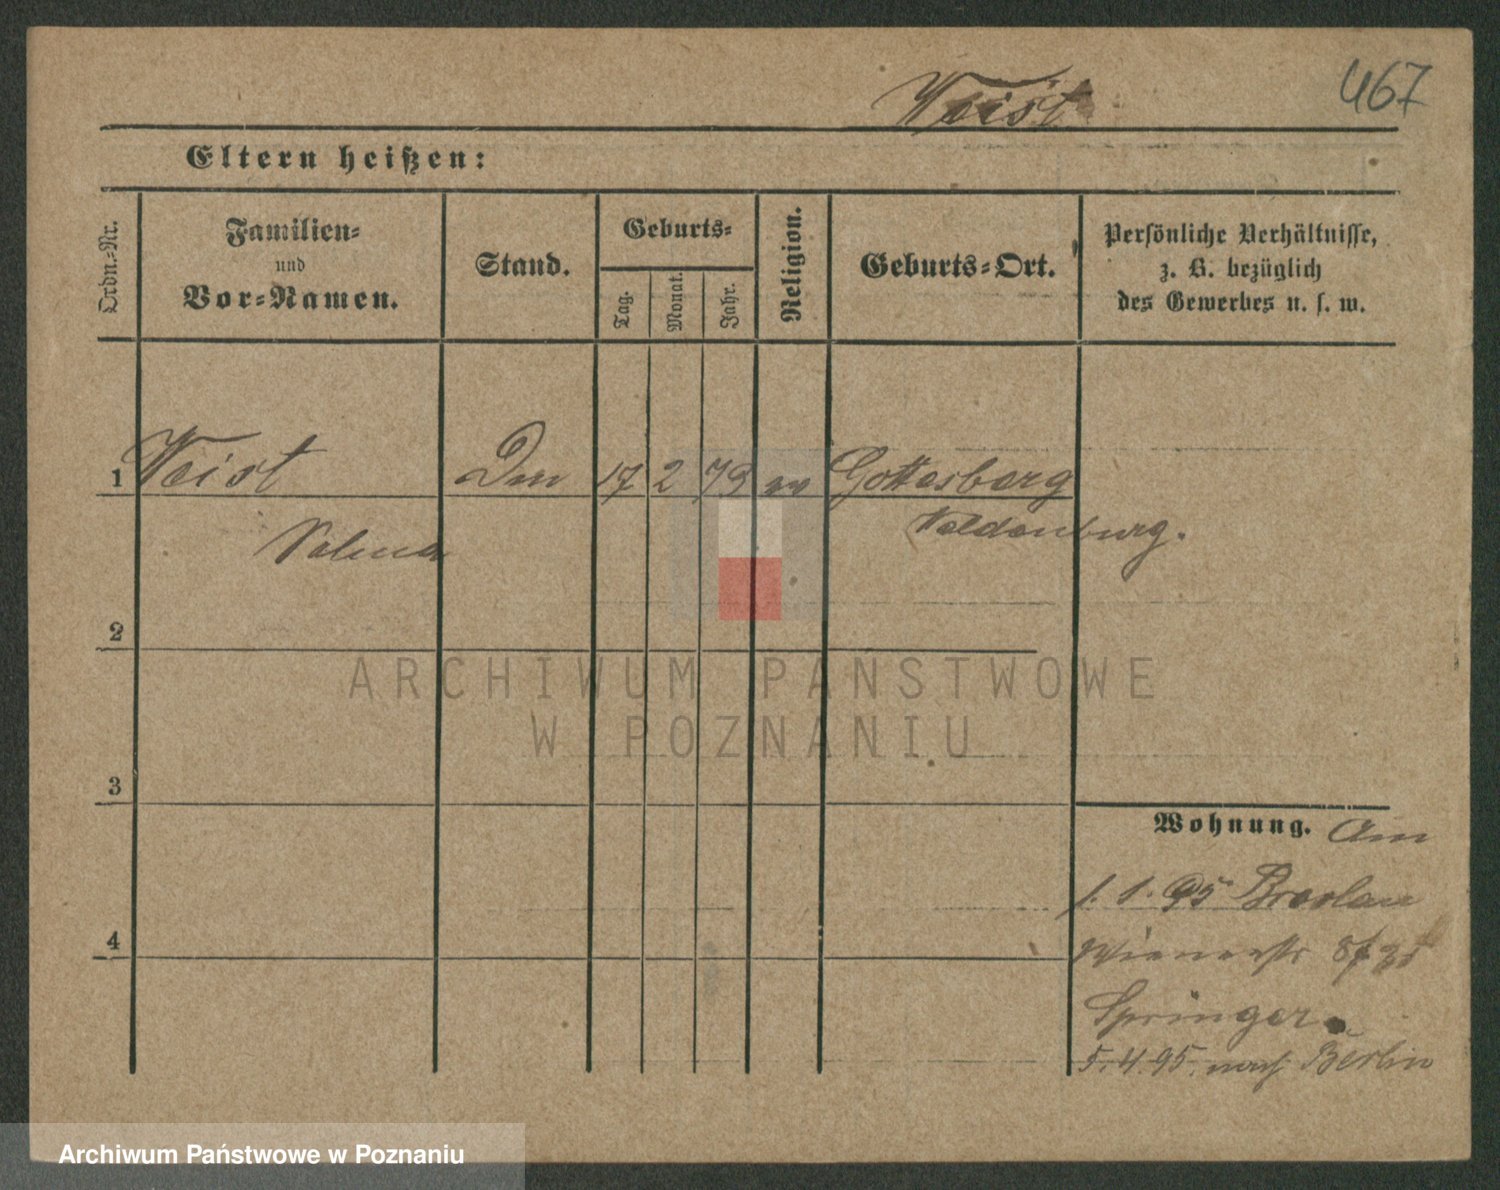 467
Weist
Eltern heißen:
Ordn.-Nr.
Familien-
und
Vor-Namen.
Stand.
Geburts-
Tag.
Monat.
Jahr.
Religion.
Geburts-Ort.
Persönliche Verhältnisse,
z. B. bezüglich
des Gewerbes u. s. w.
1 Weist 17 2 79 ev Gottesberg
Selma Waldenburg.
2
ARCHIWUM PAŃSTWOWE
W POZNANIU
3
Wohnung. Am
1. 1. 95 Breslau
4
Springer.
5. 4. 95. nach Berlin
Archiwum Państwowe w Poznaniu